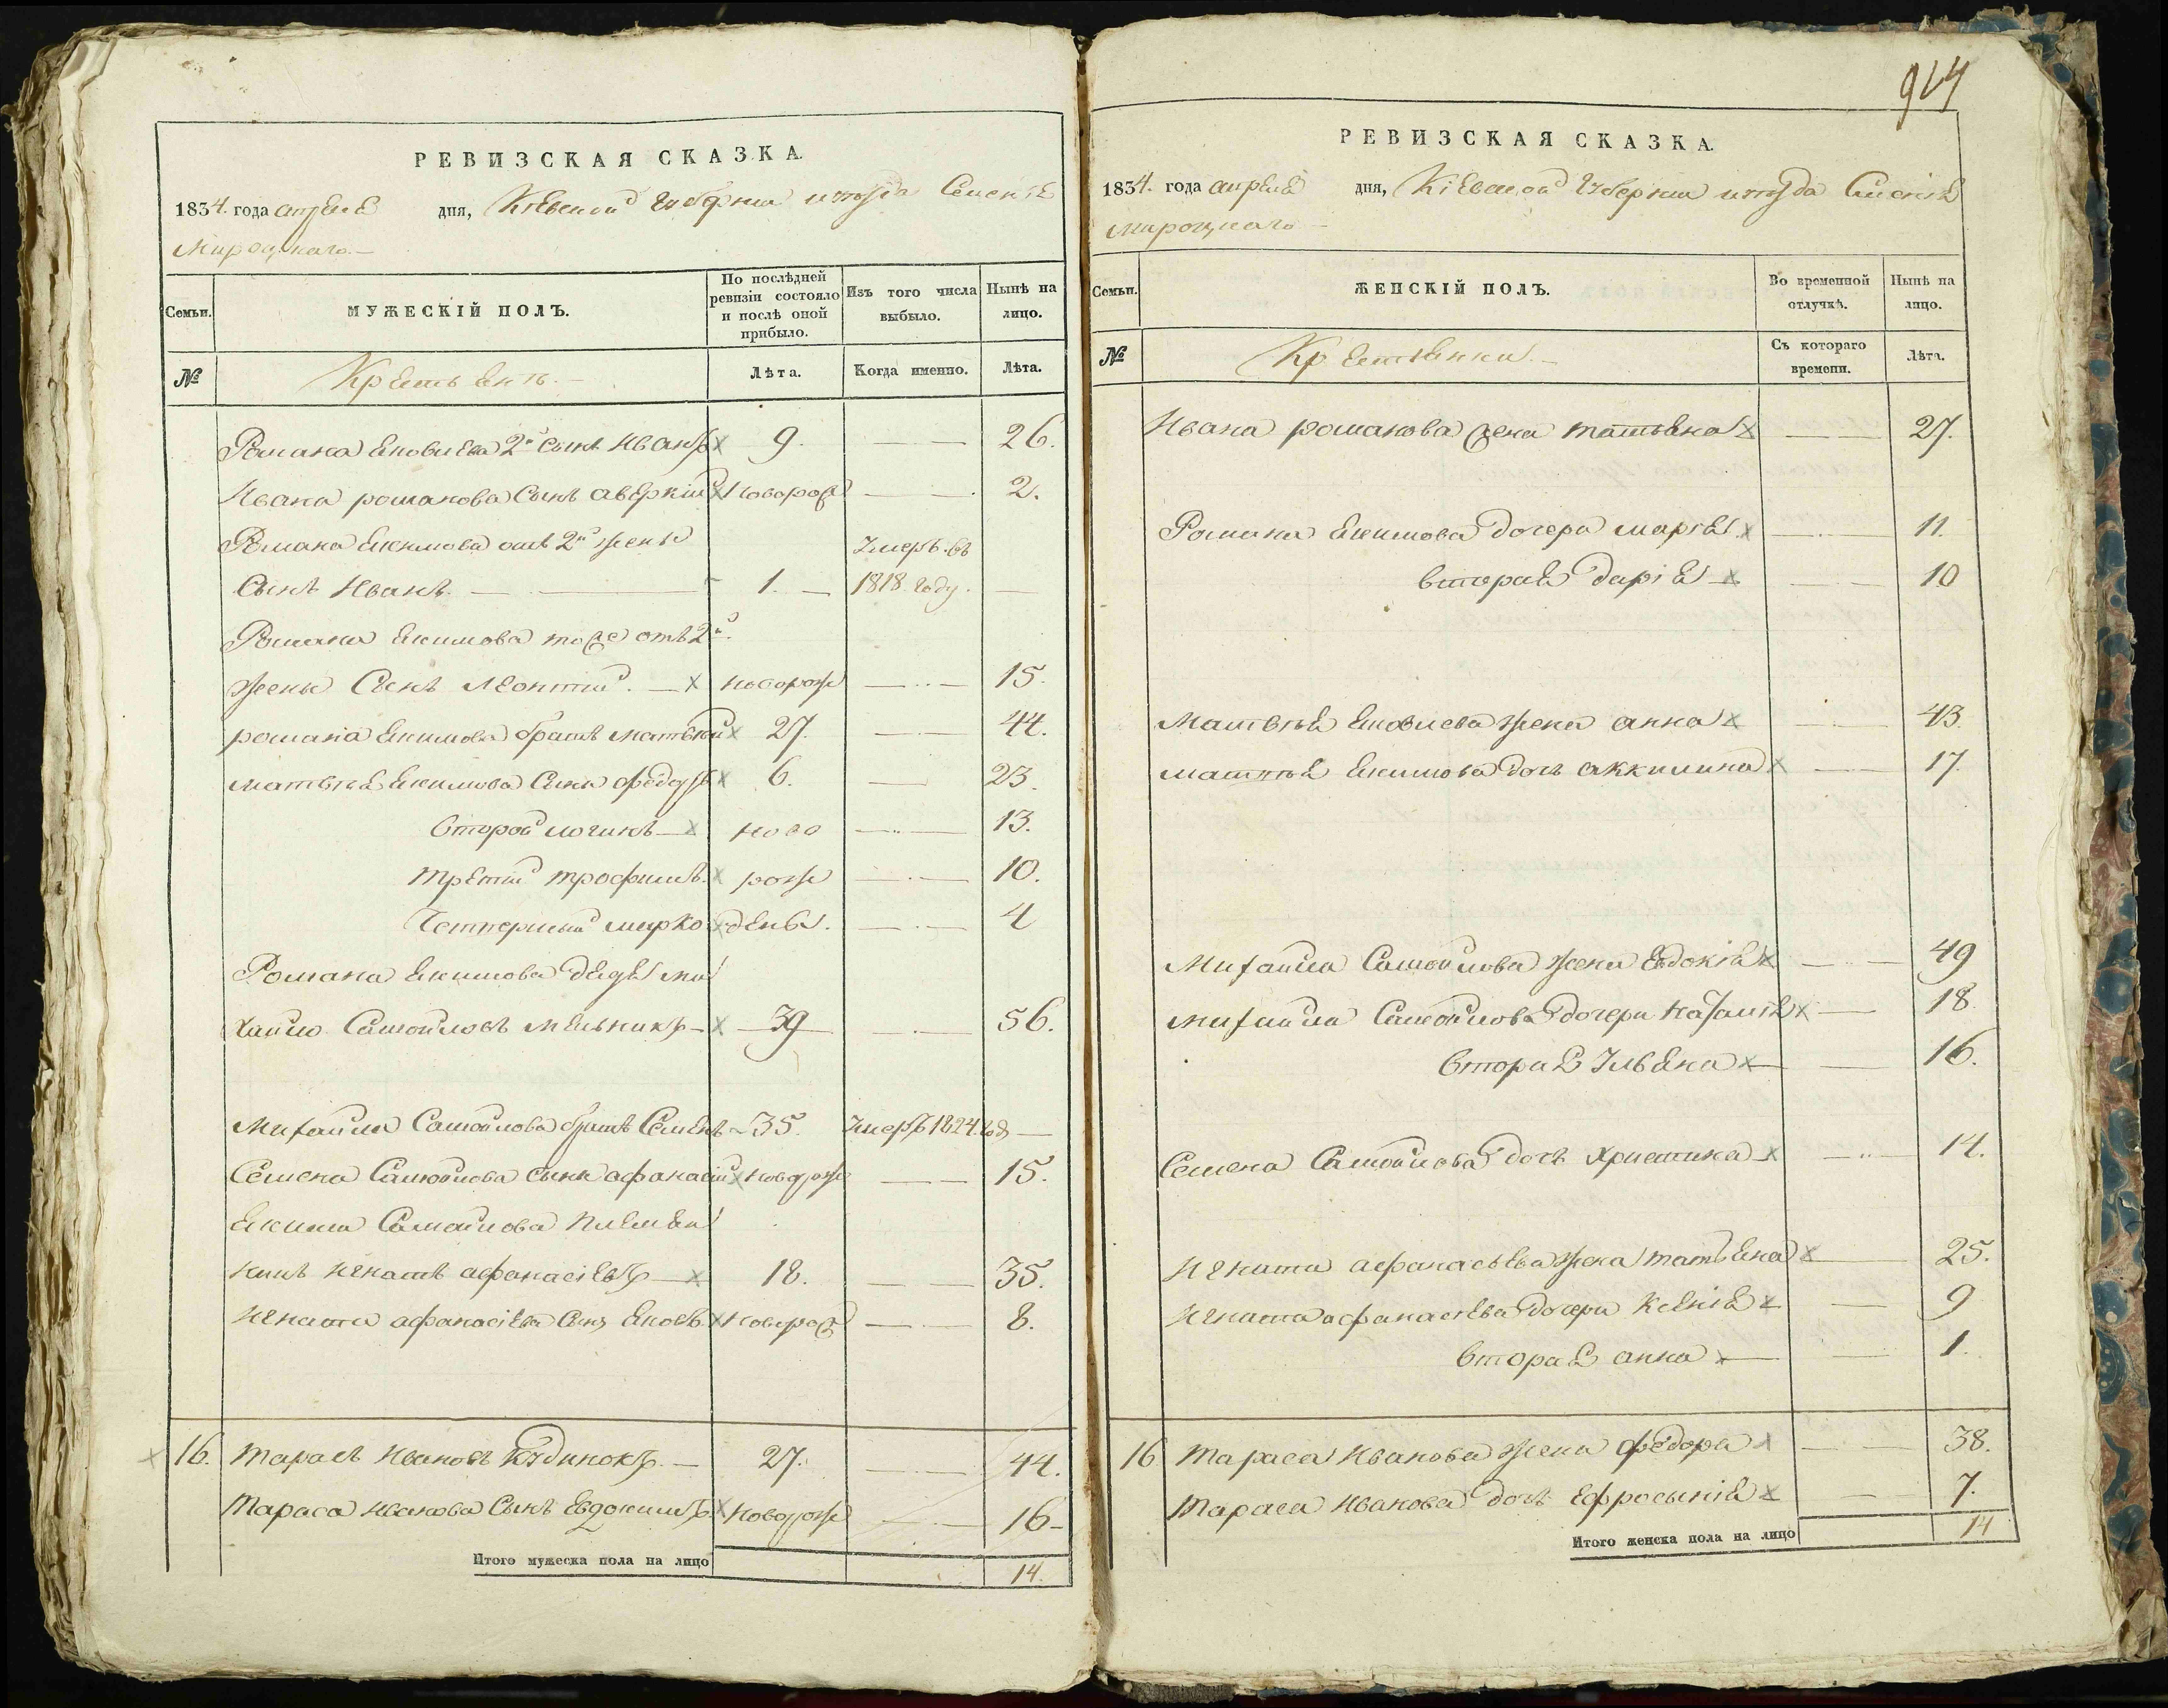 924
РЕВИЗСКАЯ СКАЗКА.
1834. года апреля дня, Кіевской губерніи и уезда Селенія
Мироцкаго.
Семьи.
МУЖЕСКІЙ ПОЛЪ.
По послѣдней ревизіи состояло и послѣ оной прибыло.
Изъ того числа выбыло.
Нынѣ на лицо.
№
Крестьянъ.
Лѣта.
Когда именно.
Лѣта.
Романа Яковлева 2й сынъ Иванъ 9. 26.
Ивана романова Сынъ аверкій новорож 2.
Романа Екимова отъ 2й жены Умеръ въ
Сынъ Иванъ. 1. 1818 году.
Романа Екимова тоже отъ 2й
жены Сынъ Леонтий. новорож 15.
романа Екимова братъ матвѣй 27. 44.
матвѣя Екимова Сынъ федоръ 6. 23.
второй логинъ ново 13.
третий трофимъ рож 10.
Четтертый марко дены. 4
Романа Екимова дядя ми
хайло Самойловъ Мельникъ 39 56.
Михайла Самойлова братъ Семенъ 35. Умеръ 1824. год
Семена Самойлова сынъ афанасий новорож 15.
Екима Самойлова племян
никъ игнатъ афанасіевъ 18. 35.
игната афанасіева Сынъ Яковъ новорож 8.
16. тарасъ Ивановъ 27. 44.
Тараса Иванова Сынъ Евдокимъ новорож 16
Итого мужеска пола на лицо 14.
РЕВИЗСКАЯ СКАЗКА.
1834. года апреля дня, Кіевской Губерніи и уезда Селенія
мироцкаго
Семьи.
ЖЕНСКІЙ ПОЛЪ.
Во временной отлучкѣ.
Нынѣ на лицо.
№
Крестьянки.
Съ котораго времени.
Лѣта.
Ивана романова жена татьяна 27.
Романа Екимова дочери марія 11.
вторая дарія 10
Матвѣя Яковлева жена анна 43.
матвѣя Екимова дочь аккилина 17.
Михайла Самойлова жена Евдокія 49
михайла Самойлова дочери Наталія 18.
вторая Ульяна 16.
Семена Самойлова дочь Христина 14.
игната афанасьева жена татьяна 25.
игната афанасіева дочери Ксенія 9
вторая анна 1.
16 тараса Иванова жена федора 38.
тараса Иванова дочь Ефросынія 7.
Итого женска пола на лицо 14